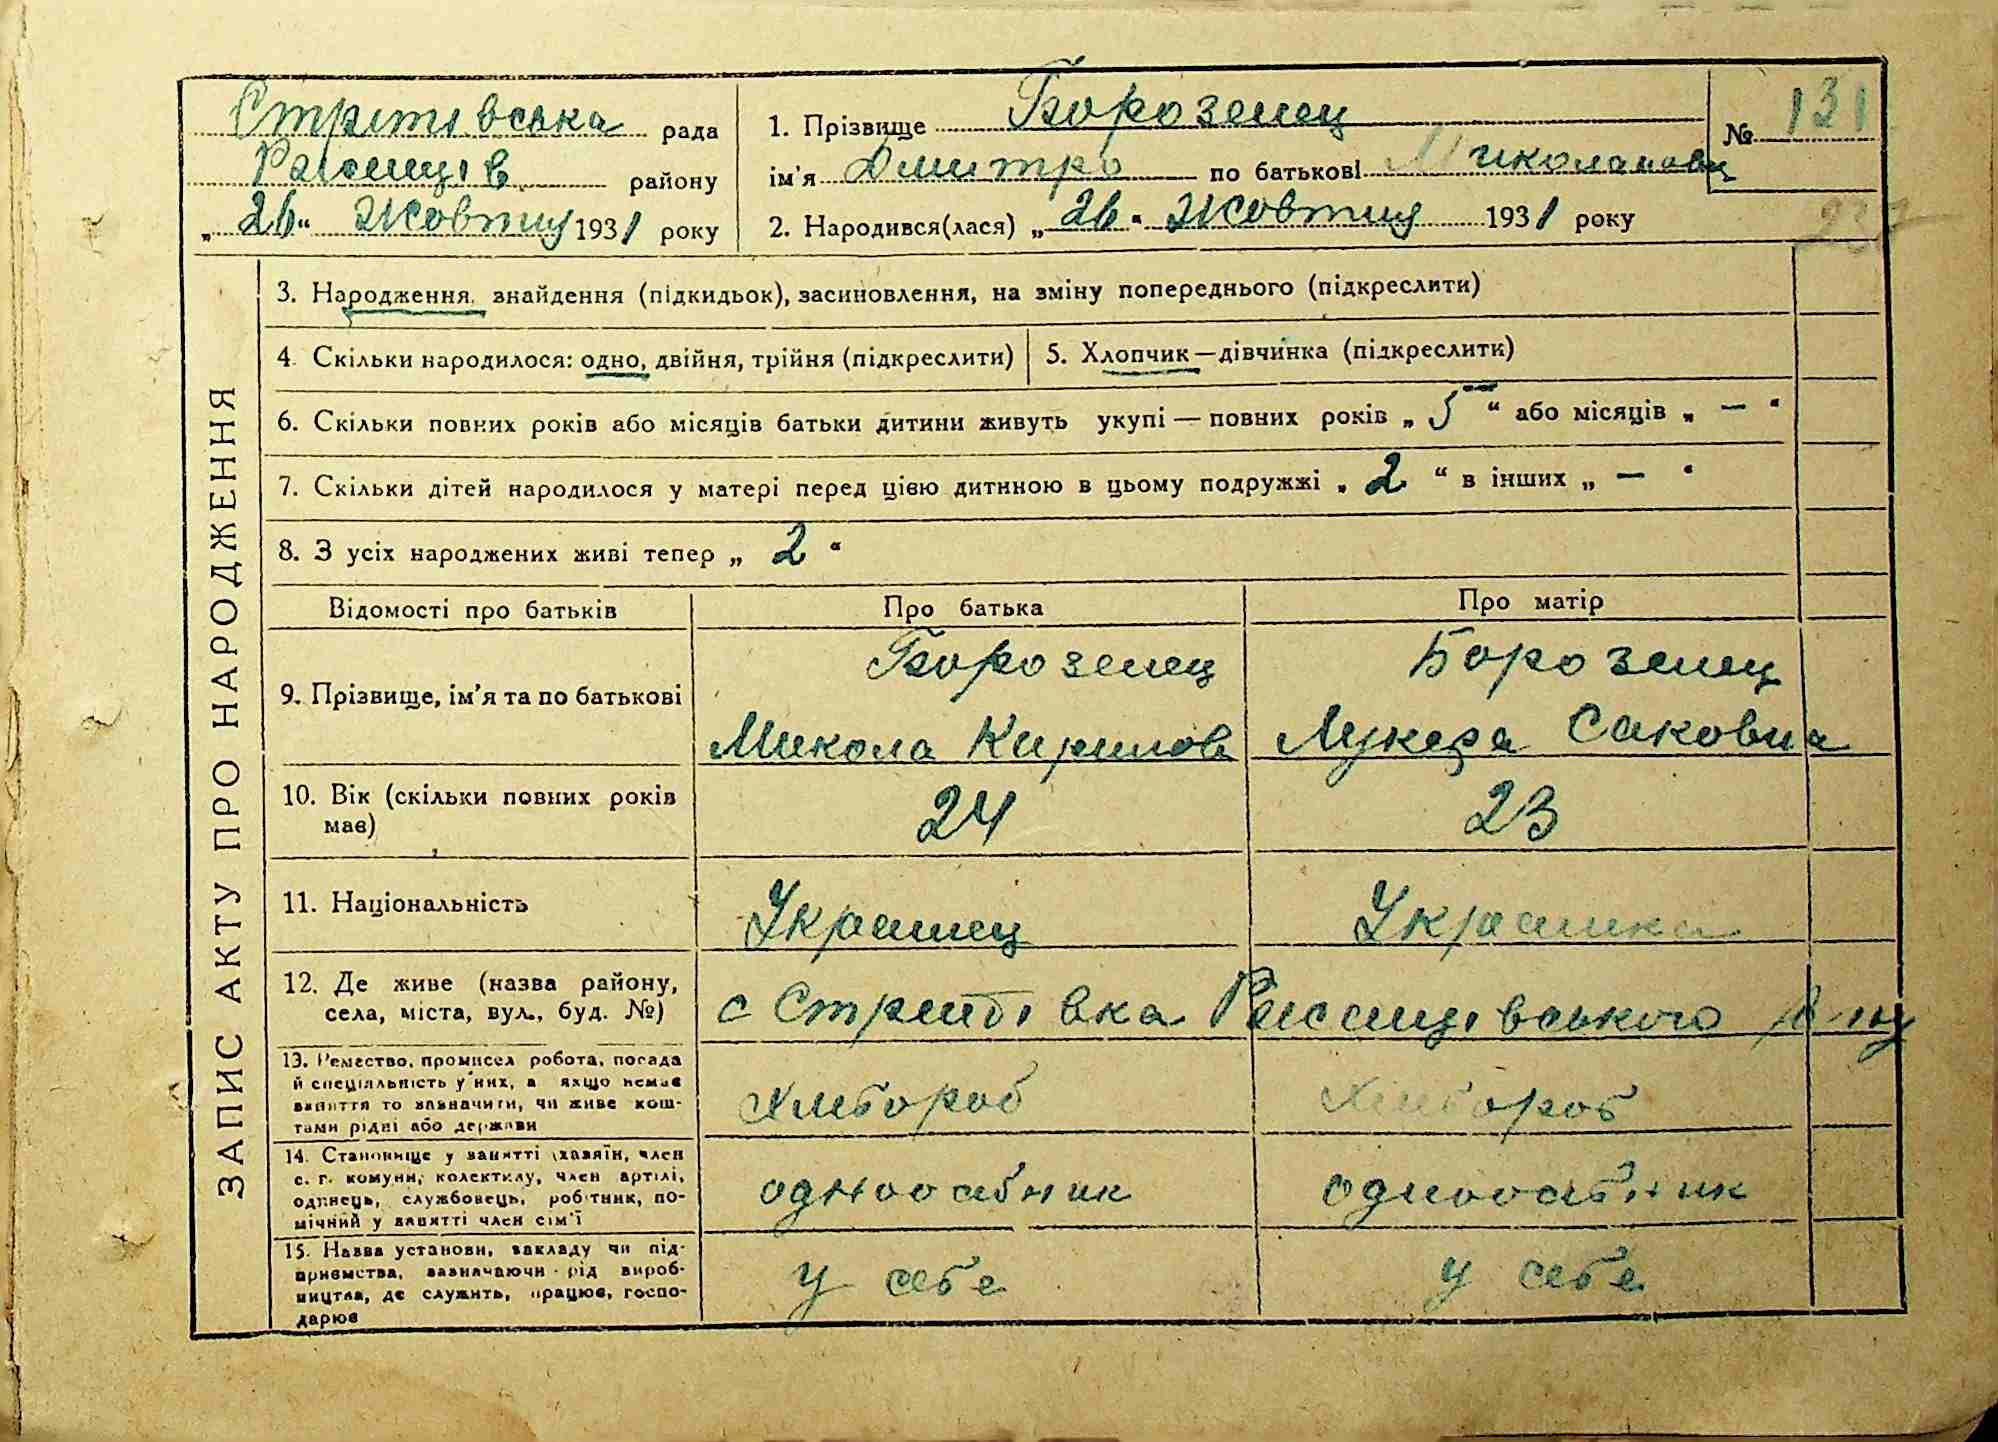 Стритівська рада
Ржищів району
„26“ Жовтня 1931 року
1. Прізвище Борозенец
ім'я Дмитро по батькові Миколайович
2. Народився(лася) „26“ Жовтня 1931 року
№ 131
ЗАПИС АКТУ ПРО НАРОДЖЕННЯ
3. Народження, знайдення (підкидьок), засиновлення, на зміну попереднього (підкреслити)
4. Скільки народилося: одно, двійня, трійня (підкреслити)
5. Хлопчик—дівчинка (підкреслити)
6. Скільки повних років або місяців батьки дитини живуть укупі — повних років „5“ або місяців „—“
7. Скільки дітей народилося у матері перед цією дитиною в цьому подружжі „2“ в інших „—“
8. З усіх народжених живі тепер „2“
Відомості про батьків Про батька Про матір
9. Прізвище, ім'я та по батькові
Борозенец Борозенец
Микола Кирилов Лукера Саковна
10. Вік (скільки повних років
має)
24 23
11. Національність Украинец Украинка
12. Де живе (назва району,
села, міста, вул., буд. №)
с Стритівка Ржищівського р-ну
13. Ремество, промисел робота, посада
й спеціяльність у них, а якщо немає
заняття то зазначити, чи живе кош-
тами рідні або держави
хлібороб хлібороб
14. Становище у занятті (хазяїн, член
с. г. комуни, колективу, член артілі,
одинець, службовець, робітник, по-
мічний у занятті член сім'ї
одноосібник одноосібник
15. Назва установи, закладу чи під-
приємства, зазначаючи рід вироб-
ництва, де служить, працює, госпо-
дарює
у себе у себе